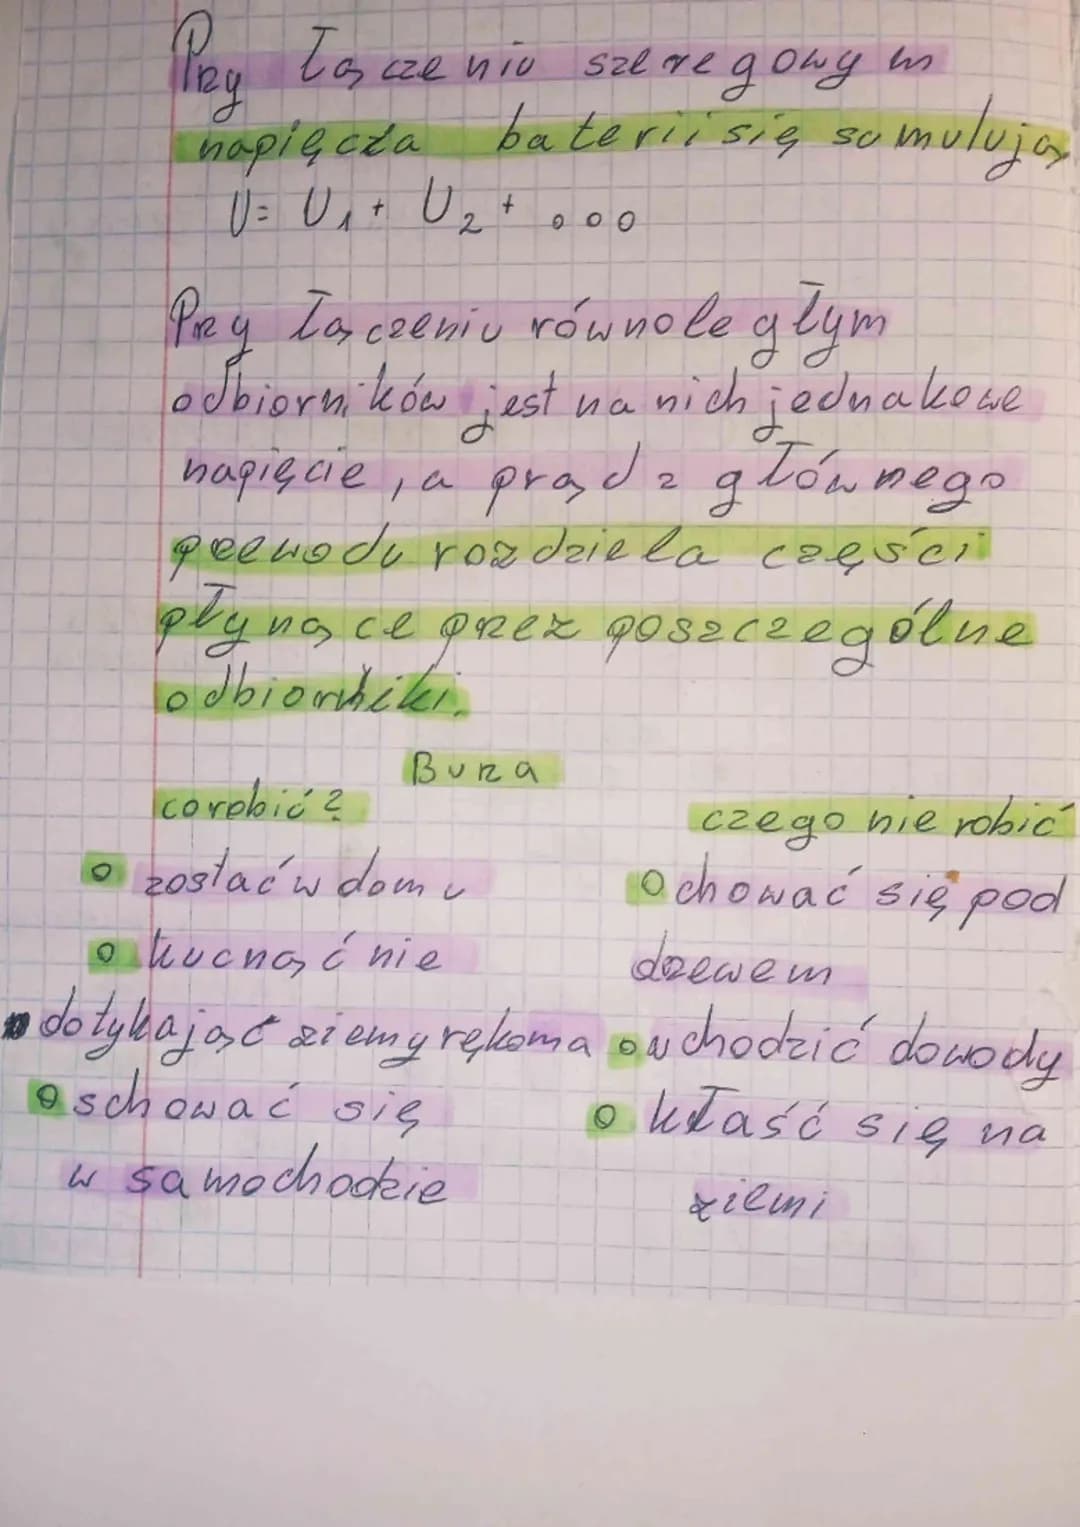 Przy łączeniu szeregowym
napięcia baterii się sumulują
U = U₁ + U₂ + ...
Przy łączeniu równoległym
odbiorników jest na nich jednakowe
napięcie, a prąd z głównego
przewodu rozdziela części
płynące przez poszczególne
odbiorniki.
Burza
co robić?
o zostać w domu
o kucnąć nie
dotykając ziemy rękoma
o schować się
w samochodzie
czego nie robić
o chować się pod
drzewem
o wchodzić do wody
o kłaść się na
ziemi